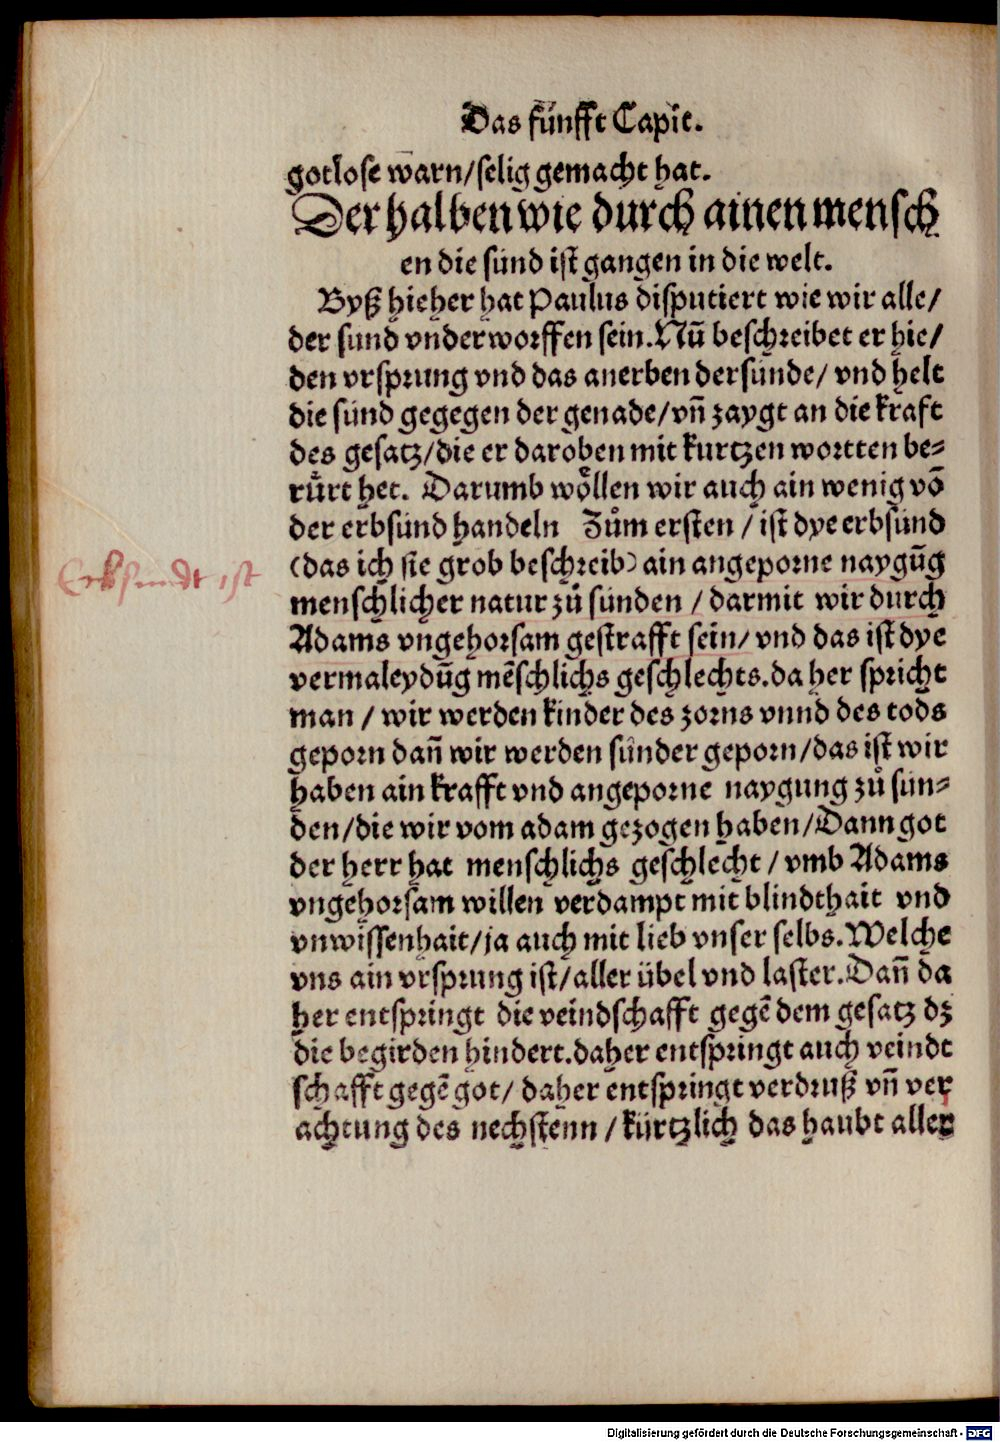 Das fünfft Capit.
gotlose warn/selig gemacht hat.
Der halben wie durch ainen mensch
en die sünd ist gangen in die welt.
Byß hieher hat Paulus disputiert wie wir alle/
der sund vnderworffen sein. Nū beschreibet er hie/
den vrsprung vnd das anerben der sünde/ vnd helt
die sünd gegegen der genade/vñ zaygt an die kraft
des gesatz/die er daroben mit kurtzen wortten be-
rürt het. Darumb wöllen wir auch ain wenig vō
der erbsünd handeln Zům ersten / ist dye erbsünd
(das ich sie grob beschreib) ain angeporne naygūg
Erbsundt ist
menschlicher natur zů sünden / darmit wir durch
Adams vngehorsam gestrafft sein/ vnd das ist dye
vermaleydūg mēschlichs geschlechts.da her spricht
man / wir werden kinder des zorns vnnd des tods
geporn dañ wir werden sünder geporn/das ist wir
haben ain krafft vnd angeporne naygung zů sün-
den/die wir vom adam gezogen haben/Dann got
der herr hat menschlichs geschlecht / vmb Adams
vngehorsam willen verdampt mit blindthait vnd
vnwissenhait/ja auch mit lieb vnser selbs.Welche
vns ain vrsprung ist/aller übel vnd laster.Dañ da
her entspringt die veindschafft gegē dem gesatz dz
die begirden hindert.daher entspringt auch veindt
schafft gegē got/ daher entspringt verdruß vñ ver
achtung des nechstenn / kürtzlich das haubt aller
Digitalisierung gefördert durch die Deutsche Forschungsgemeinschaft - DFG